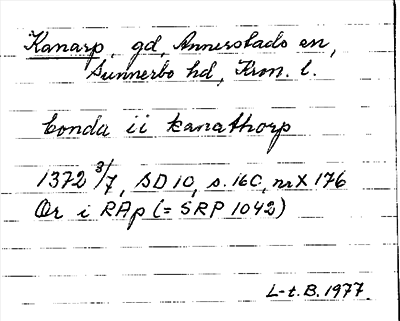 Kanarp, gd, Annerstads sn,
Sunnerbo hd, Kron. l.
bonda ii kanathorp
1372 3/7, SD 10, s. 160, nr X 176
Or i RAp (= SRP 1042)
L-t. B. 1977.